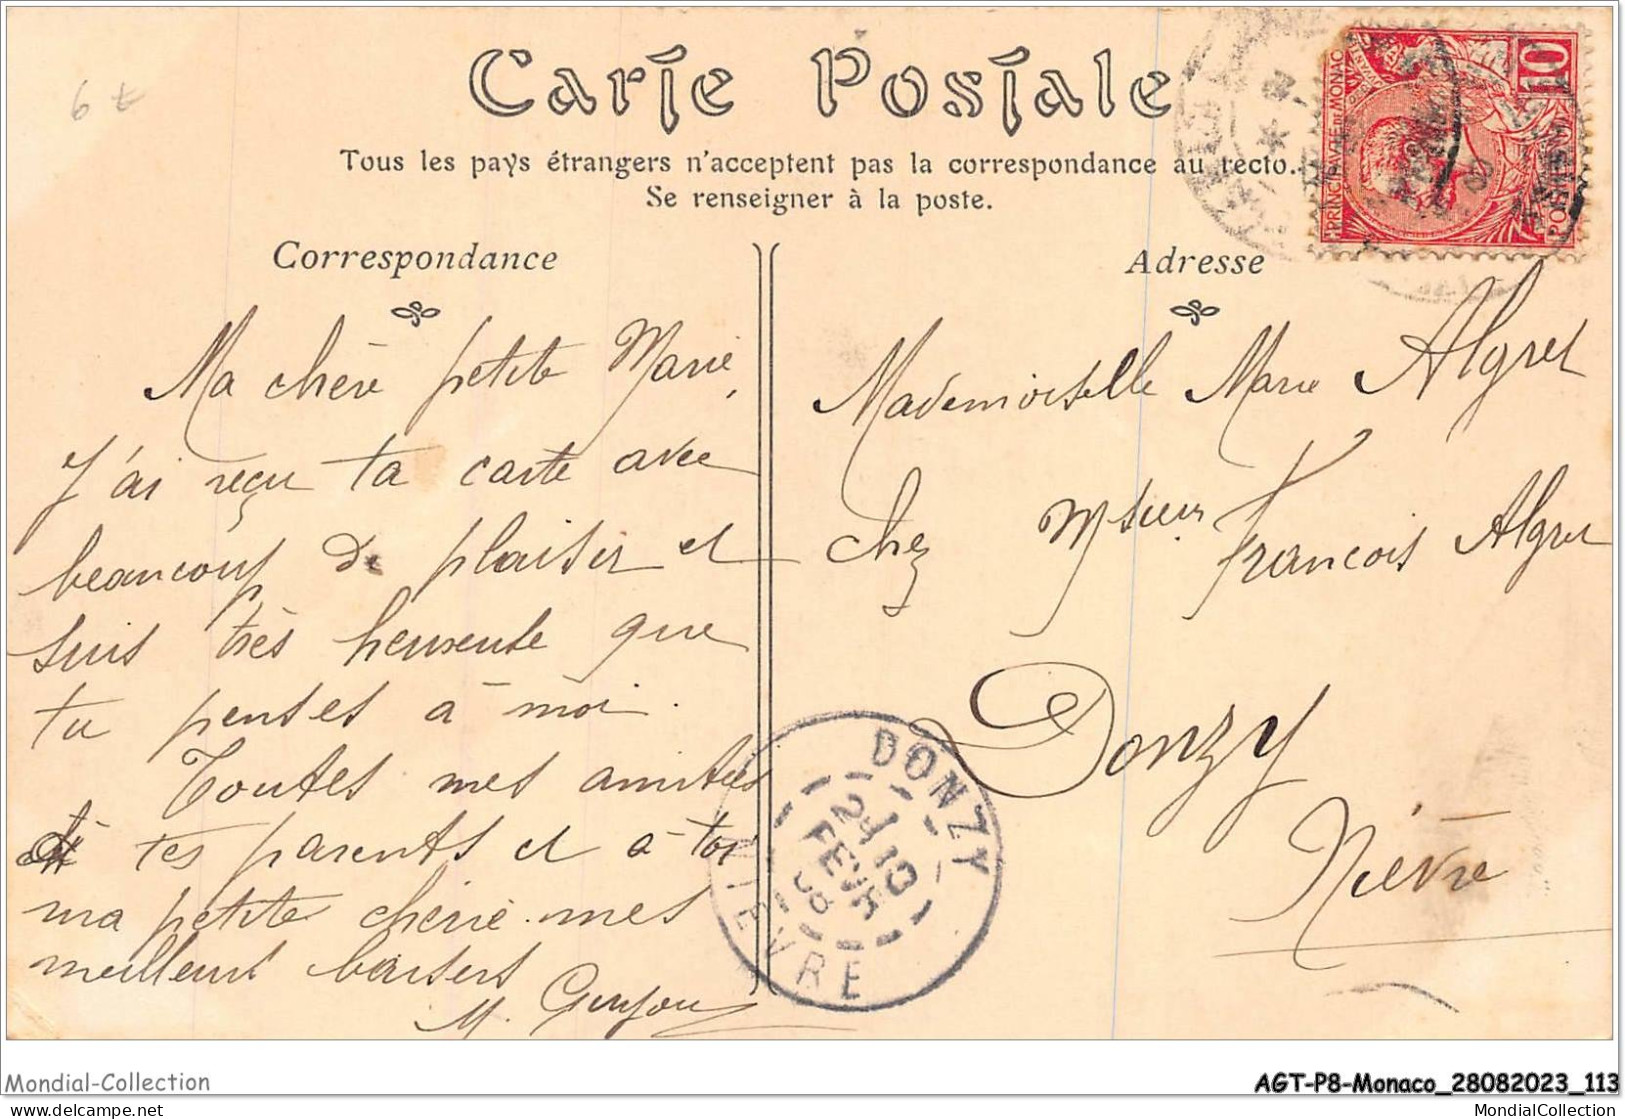 Carte Postale
Tous les pays étrangers n'acceptent pas la correspondance au recto.
Se renseigner à la poste.
Correspondance
Adresse
6 €
10
PRINCIPAUTÉ DE MONACO
POSTES
Ma chère petite Marie,
J'ai reçu ta carte avec
beaucoup de plaisir et
suis très heureuse que
tu penses à moi.
Toutes mes amitiés
à tes parents et à toi
ma petite chérie mes
meilleurs baisers
M. Guyou
Mademoiselle Marie Algret
chez Msieur François Algret
Donzy
Nièvre
DONZY
21 10
FEVR
08
NIEVRE
Mondial-Collection
AGT-P8-Monaco_28082023_113
www.delcampe.net
MondialCollection